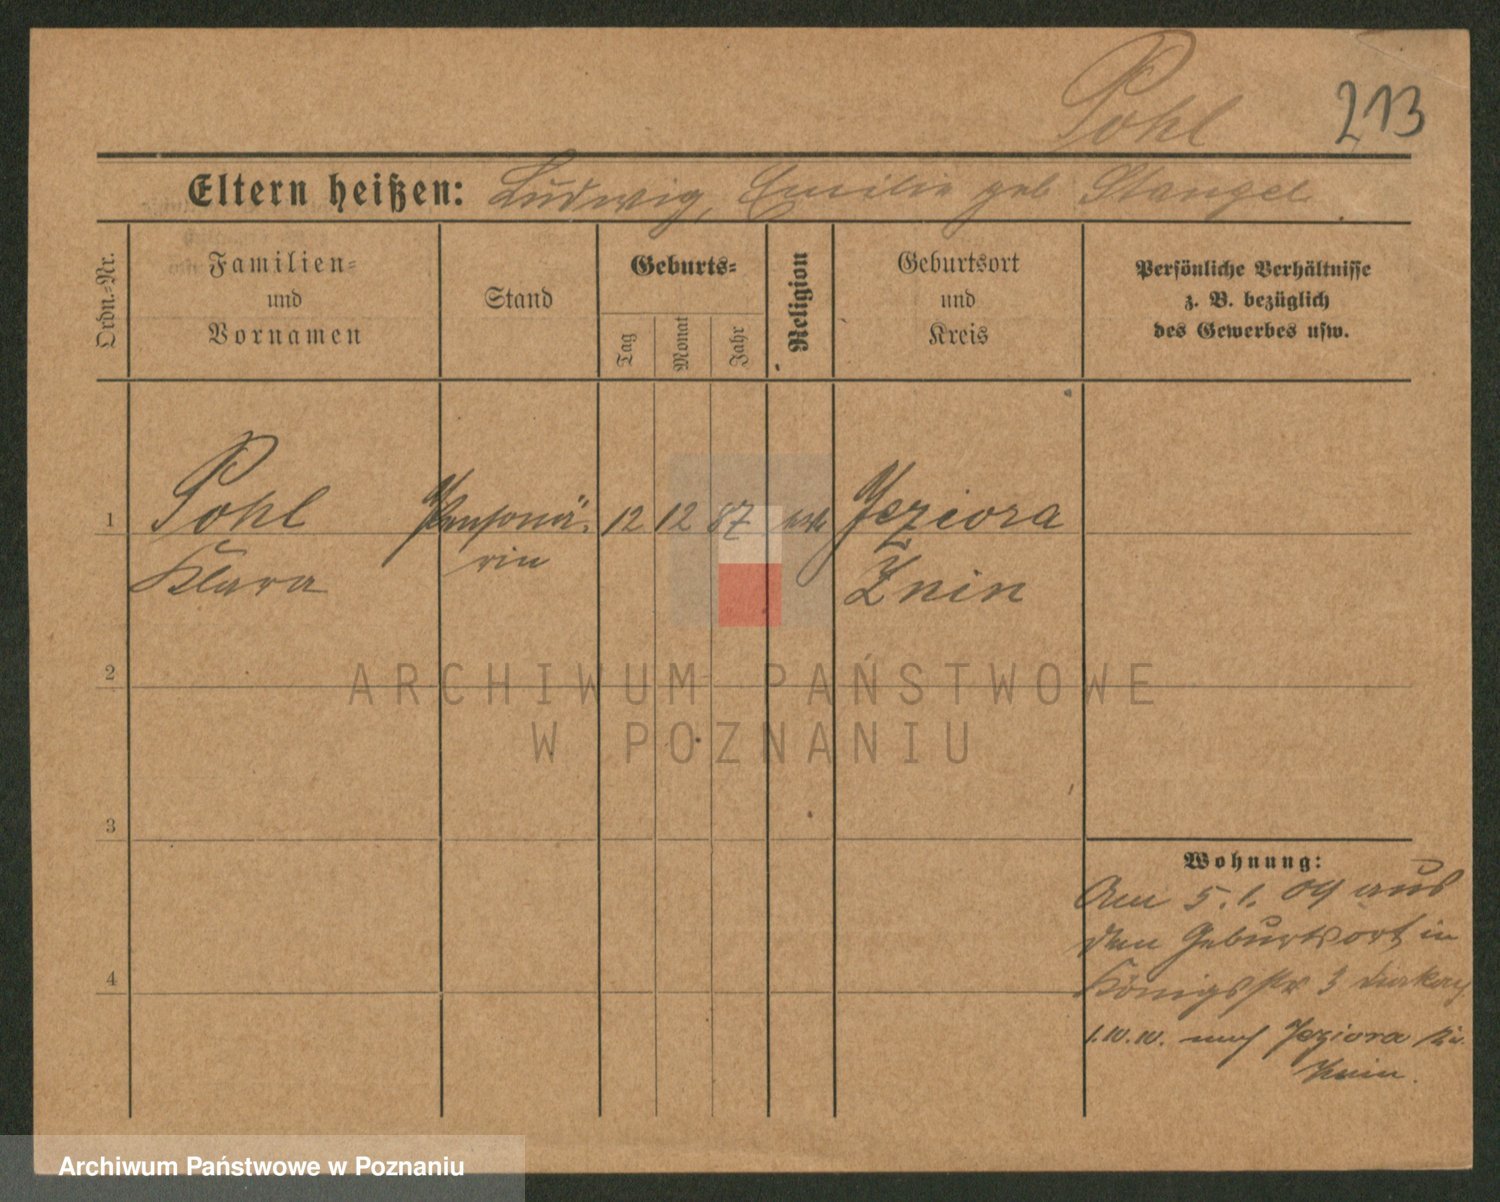 Pohl 213
Eltern heißen: Ludwig, Emilie geb Stangel.
Ordn.-Nr.
Familien-
und
Vornamen
Stand
Geburts-
Tag
Monat
Jahr
Religion
Geburtsort
und
Kreis
Persönliche Verhältnisse
z. B. bezüglich
des Gewerbes usw.
1
Pohl
Klara
Pensionä-
rin
12 12 87
Jeziora
Znin
2
3
4
Wohnung:
Am 5.1.09 aus
dem Geburtsort in
Königsstr 3
nach Jeziora Kr.
Znin.
ARCHIWUM PAŃSTWOWE
W POZNANIU
Archiwum Państwowe w Poznaniu